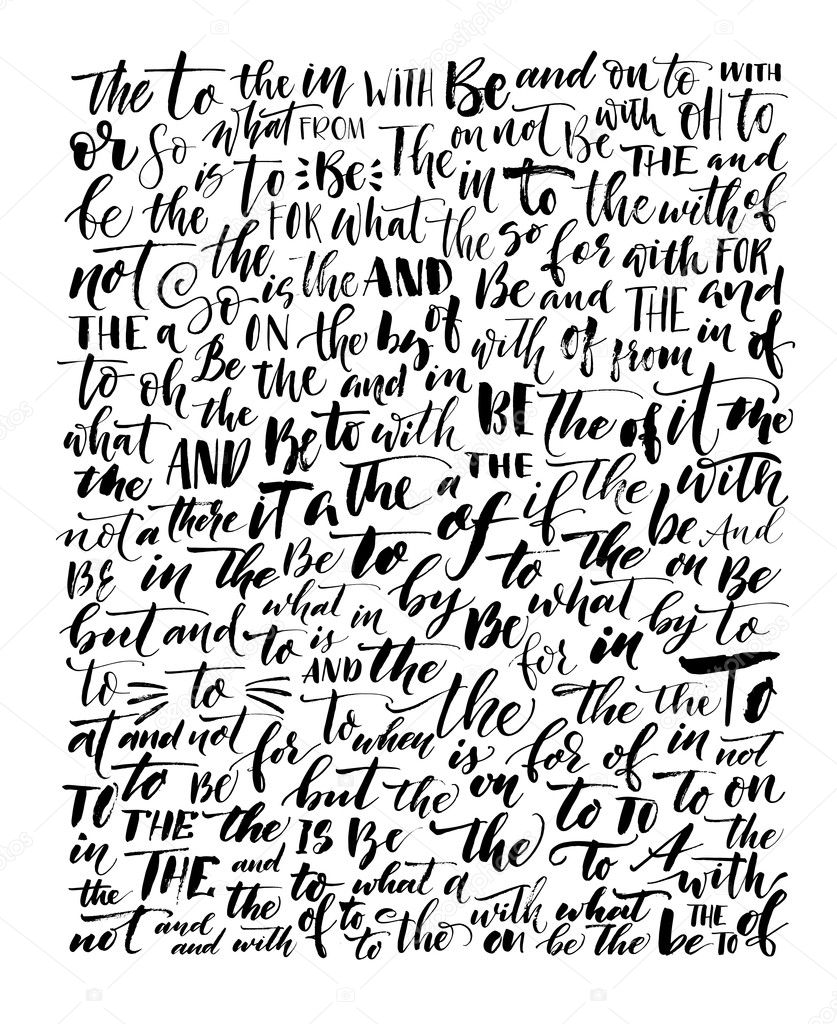 the to the in WITH Be and on to WITH
or so what FROM The on not Be with OH to
is to Be in to THE and
be the FOR what the so the with of
not so the is the AND Be and for with FOR
THE a ON the by of with of THE and
to oh Be the and in from in of
what the AND Be to with BE the of it me
the THE
not a there it a the a of if the with
BE in the Be to by to the be And
on Be
but and to what in is Be what by to
to to AND the for in To
at and not for to when the is the the
for of in not
TO to BE but the on to TO to on
in THE the IS Be the to A the
the THE and to what a with
not and the of to the with what THE of
and with to on be the be TO